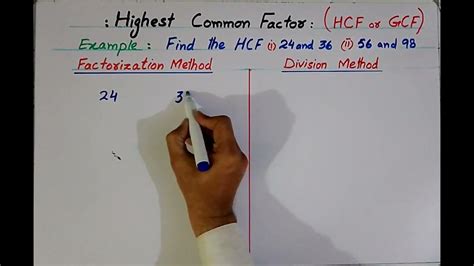 : Highest Common Factor : (HCF or GCF)
Example : Find the HCF (i) 24 and 36 (ii) 56 and 98
Factorization Method
Division Method
24 3